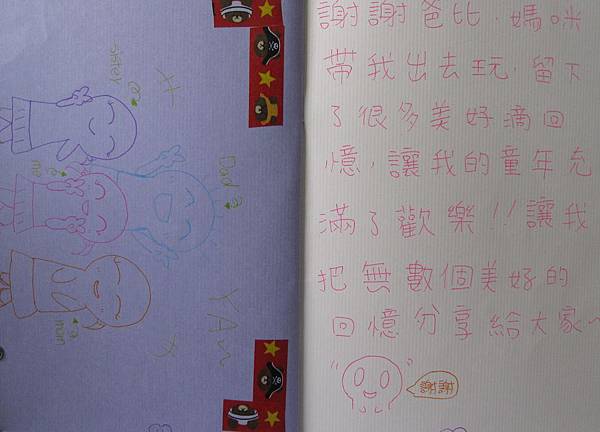 sister
me
Dad
mom
YAm
謝謝爸比,媽咪
帶我出去玩,留下
了很多美好滴回
憶,讓我的童年充
滿了歡樂!!讓我
把無數個美好的
回憶分享給大家~
謝謝